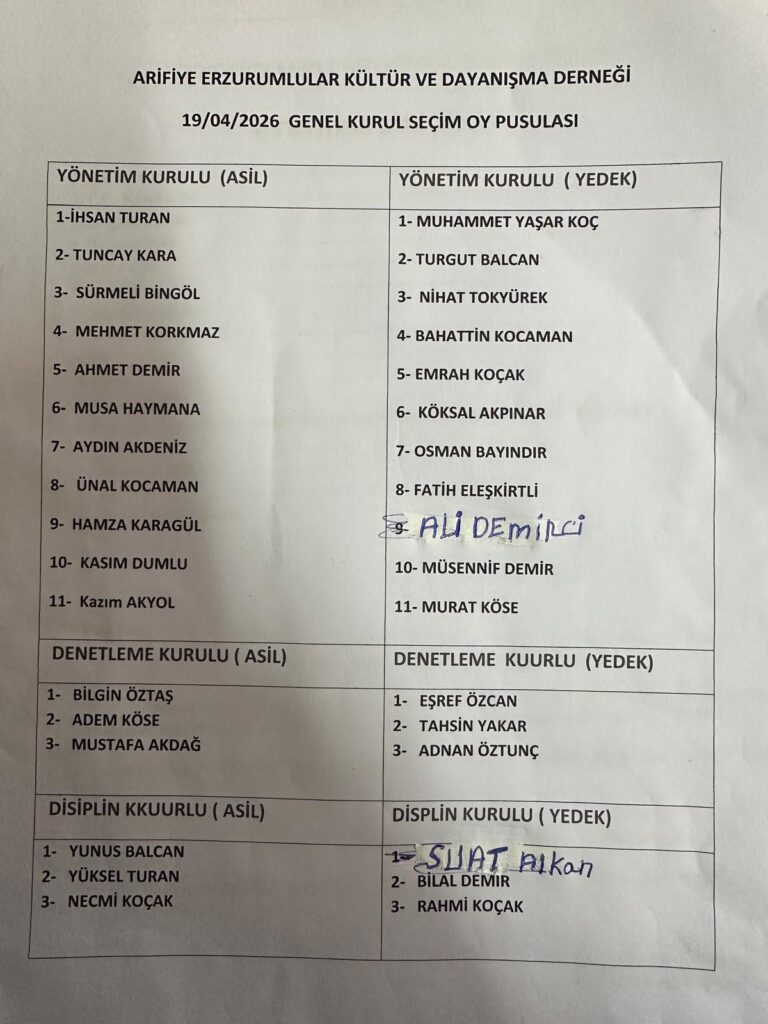 ARİFİYE ERZURUMLULAR KÜLTÜR VE DAYANIŞMA DERNEĞİ
19/04/2026 GENEL KURUL SEÇİM OY PUSULASI
YÖNETİM KURULU (ASİL)
1-İHSAN TURAN
2- TUNCAY KARA
3- SÜRMELİ BİNGÖL
4- MEHMET KORKMAZ
5- AHMET DEMİR
6- MUSA HAYMANA
7- AYDIN AKDENİZ
8- ÜNAL KOCAMAN
9- HAMZA KARAGÜL
10- KASIM DUMLU
11- Kazım AKYOL
YÖNETİM KURULU ( YEDEK)
1- MUHAMMET YAŞAR KOÇ
2- TURGUT BALCAN
3- NİHAT TOKYÜREK
4- BAHATTİN KOCAMAN
5- EMRAH KOÇAK
6- KÖKSAL AKPINAR
7- OSMAN BAYINDIR
8- FATİH ELEŞKİRTLİ
9- ALİ DEMİRCİ
10- MÜSENNİF DEMİR
11- MURAT KÖSE
DENETLEME KURULU ( ASİL)
1- BİLGİN ÖZTAŞ
2- ADEM KÖSE
3- MUSTAFA AKDAĞ
DENETLEME KUURLU (YEDEK)
1- EŞREF ÖZCAN
2- TAHSİN YAKAR
3- ADNAN ÖZTUNÇ
DİSİPLİN KKUURLU ( ASİL)
1- YUNUS BALCAN
2- YÜKSEL TURAN
3- NECMİ KOÇAK
DİSPLİN KURULU ( YEDEK)
1- SUAT Alkan
2- BİLAL DEMİR
3- RAHMİ KOÇAK